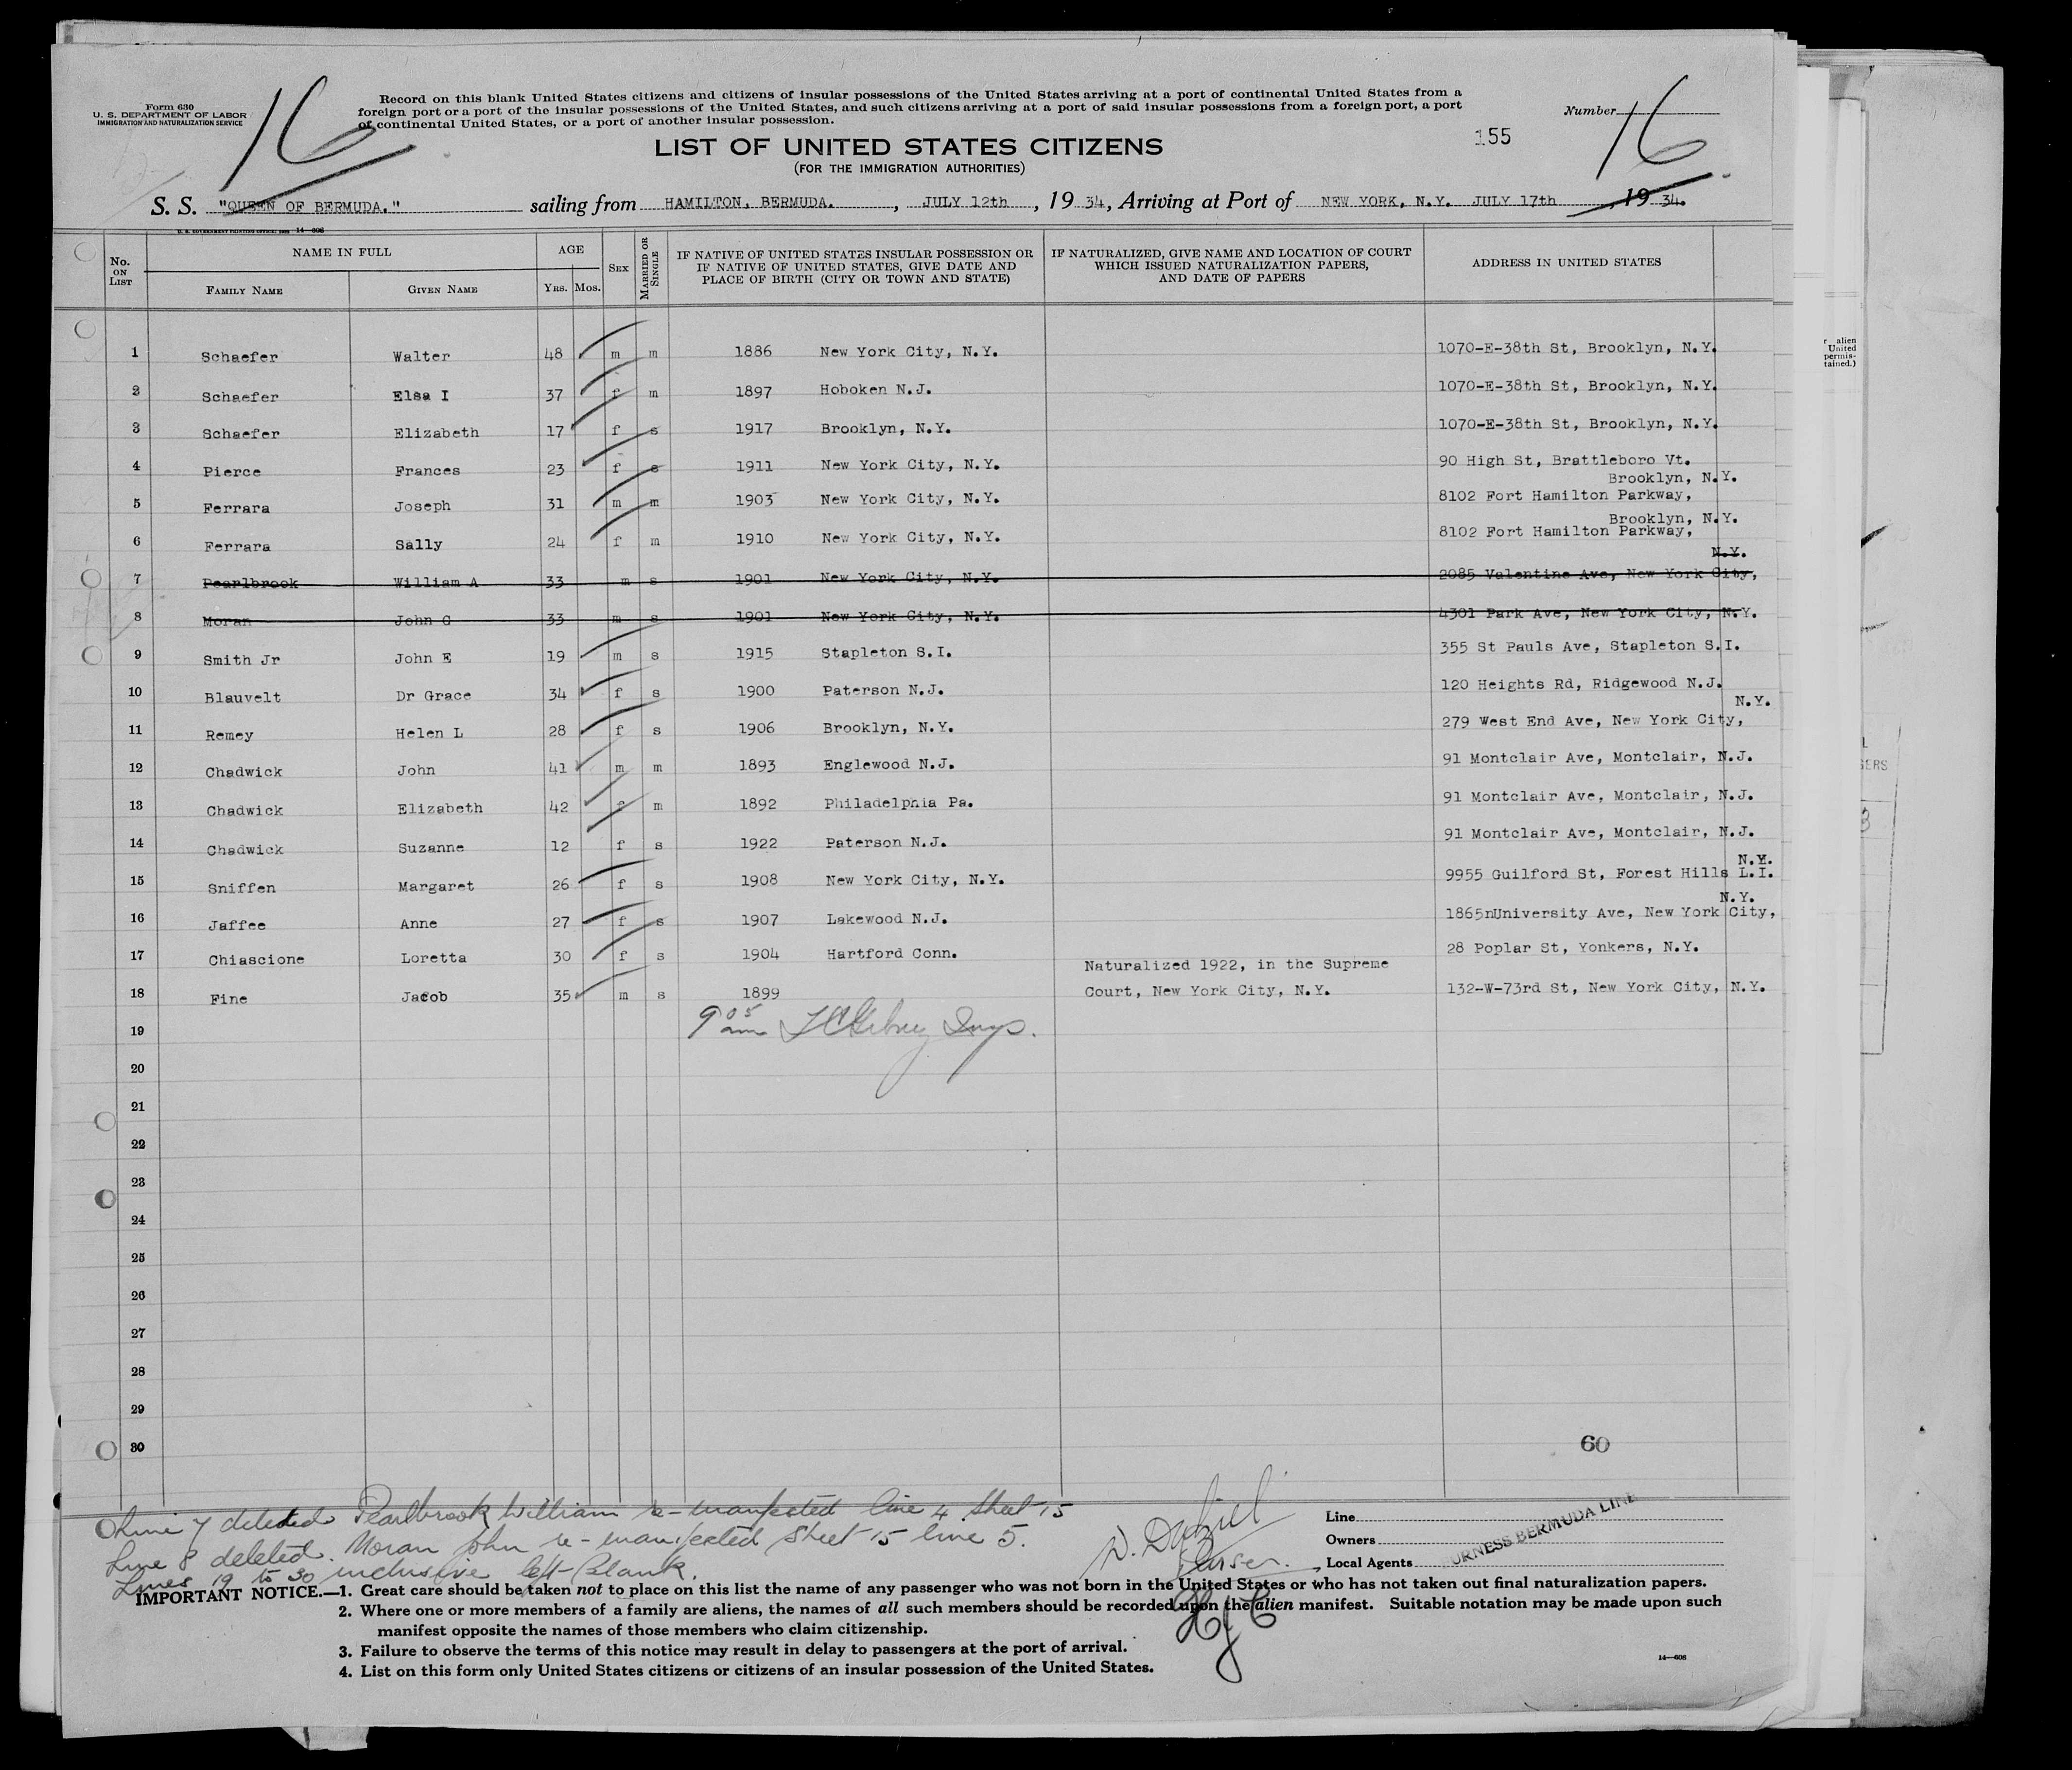 Form 630
U. S. DEPARTMENT OF LABOR
IMMIGRATION AND NATURALIZATION SERVICE
16
Record on this blank United States citizens and citizens of insular possessions of the United States arriving at a port of continental United States from a
foreign port or a port of the insular possessions of the United States, and such citizens arriving at a port of said insular possessions from a foreign port, a port
of continental United States, or a port of another insular possession.
Number 16
155
LIST OF UNITED STATES CITIZENS
(FOR THE IMMIGRATION AUTHORITIES)
S. S. "QUEEN OF BERMUDA." sailing from HAMILTON, BERMUDA. , JULY 12th , 19 34, Arriving at Port of NEW YORK, N.Y. JULY 17th , 19 34.
U. S. GOVERNMENT PRINTING OFFICE: 14—608
No. ON LIST NAME IN FULL FAMILY NAME GIVEN NAME AGE YRS. MOS. SEX MARRIED OR SINGLE
IF NATIVE OF UNITED STATES INSULAR POSSESSION OR
IF NATIVE OF UNITED STATES, GIVE DATE AND
PLACE OF BIRTH (CITY OR TOWN AND STATE)
IF NATURALIZED, GIVE NAME AND LOCATION OF COURT
WHICH ISSUED NATURALIZATION PAPERS,
AND DATE OF PAPERS
ADDRESS IN UNITED STATES
1 Schaefer Walter 48 m m 1886 New York City, N.Y. 1070-E-38th St, Brooklyn, N.Y.
2 Schaefer Elsa I 37 f m 1897 Hoboken N.J. 1070-E-38th St, Brooklyn, N.Y.
3 Schaefer Elizabeth 17 f s 1917 Brooklyn, N.Y. 1070-E-38th St, Brooklyn, N.Y.
4 Pierce Frances 23 f s 1911 New York City, N.Y. 90 High St, Brattleboro Vt.
Brooklyn, N.Y.
5 Ferrara Joseph 31 m m 1903 New York City, N.Y. 8102 Fort Hamilton Parkway,
Brooklyn, N.Y.
6 Ferrara Sally 24 f m 1910 New York City, N.Y. 8102 Fort Hamilton Parkway,
N.Y.
7 Pearlbrook William A 33 m s 1901 New York City, N.Y. 2085 Valentine Ave, New York City,
8 Moran John G 33 m s 1901 New York City, N.Y. 4301 Park Ave, New York City, N.Y.
9 Smith Jr John E 19 m s 1915 Stapleton S.I. 355 St Pauls Ave, Stapleton S.I.
10 Blauvelt Dr Grace 34 f s 1900 Paterson N.J. 120 Heights Rd, Ridgewood N.J.
N.Y.
11 Remey Helen L 28 f s 1906 Brooklyn, N.Y. 279 West End Ave, New York City,
12 Chadwick John 41 m m 1893 Englewood N.J. 91 Montclair Ave, Montclair, N.J.
13 Chadwick Elizabeth 42 f m 1892 Philadelphia Pa. 91 Montclair Ave, Montclair, N.J.
14 Chadwick Suzanne 12 f s 1922 Paterson N.J. 91 Montclair Ave, Montclair, N.J.
N.Y.
15 Sniffen Margaret 26 f s 1908 New York City, N.Y. 9955 Guilford St, Forest Hills L.I.
N.Y.
16 Jaffee Anne 27 f s 1907 Lakewood N.J. 1865nUniversity Ave, New York City,
17 Chiascione Loretta 30 f s 1904 Hartford Conn. 28 Poplar St, Yonkers, N.Y.
Naturalized 1922, in the Supreme
18 Fine Jacob 35 m s 1899 Court, New York City, N.Y. 132-W-73rd St, New York City, N.Y.
19 9 05 am Insp.
20
21
22
23
24
25
26
27
28
29
30
60
Line 7 deleted Pearlbrook William re-manifested line 4 sheet 15
Line 8 deleted. Moran John re-manifested sheet 15 line 5.
Lines 19 to 30 inclusive left blank.
Purser.
Line
Owners
Local Agents
FURNESS BERMUDA LINE
IMPORTANT NOTICE.—1. Great care should be taken not to place on this list the name of any passenger who was not born in the United States or who has not taken out final naturalization papers.
2. Where one or more members of a family are aliens, the names of all such members should be recorded upon the alien manifest. Suitable notation may be made upon such
manifest opposite the names of those members who claim citizenship.
3. Failure to observe the terms of this notice may result in delay to passengers at the port of arrival.
4. List on this form only United States citizens or citizens of an insular possession of the United States.
14—608
r alien
United
permis-
tained.)